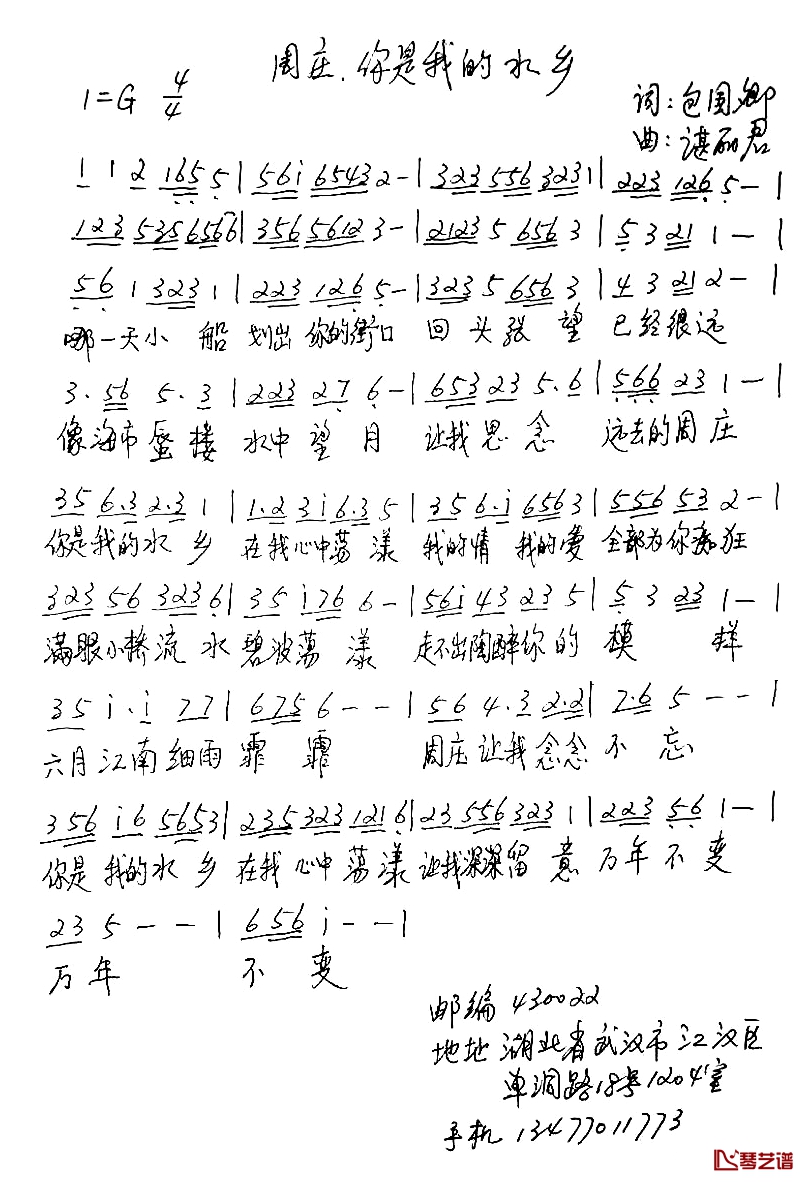 周庄,你是我的水乡
1=G 4/4
词:包国卿
曲:谌丽君
1 1 2 165 5 | 56i 6543 2 - | 323 556 323 1 | 223 126 5 - - |
123 535 6566 | 356 5612 3 - | 2123 5 656 3 | 5 3 21 1 - - |
56 1 323 1 | 223 126 5 - | 323 5 656 3 | 4 3 21 2 - |
哪一天小船 划出你的街口 回头张望 已经很远
3. 56 5. 3 | 223 27 6 - | 653 23 5. 6 | 566 23 1 - |
像海市蜃楼 水中望月 让我思念 远去的周庄
35 6.3 2.3 1 | 1.2 3i 6.3 5 | 35 6.i 656 3 | 556 53 2 - |
你是我的水乡 在我心中荡漾 我的情 我的爱 全部为你痴狂
323 56 323 6 | 35 i76 6 - | 56i 43 23 5 | 5 3 23 1 - |
满眼小桥流水 碧波荡漾 走不出陶醉你的模样
35 i. i 77 | 675 6 - - | 56 4. 3 2.2 | 7.6 5 - - |
六月江南细雨霏霏 周庄让我念念不忘
356 i6 5653 | 235 323 121 6 | 23 556 323 1 | 223 56 1 - |
你是我的水乡 在我心中荡漾 让我深深留意 万年不变
23 5 - - | 656 i - - |
万年 不变
邮编 430022
地址 湖北省武汉市江汉区
单洞路18号1204室
手机 13477011773
琴艺谱